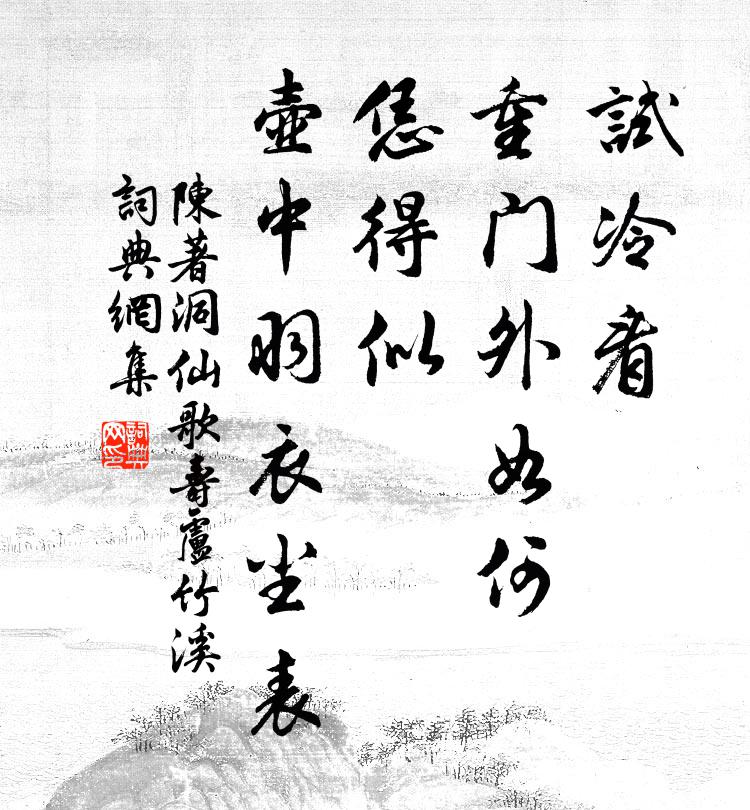 試冷看
重門外如何
恁得似
壺中羽衣塵表
陳著洞仙歌壽盧竹溪
詞典網集
詞典網印